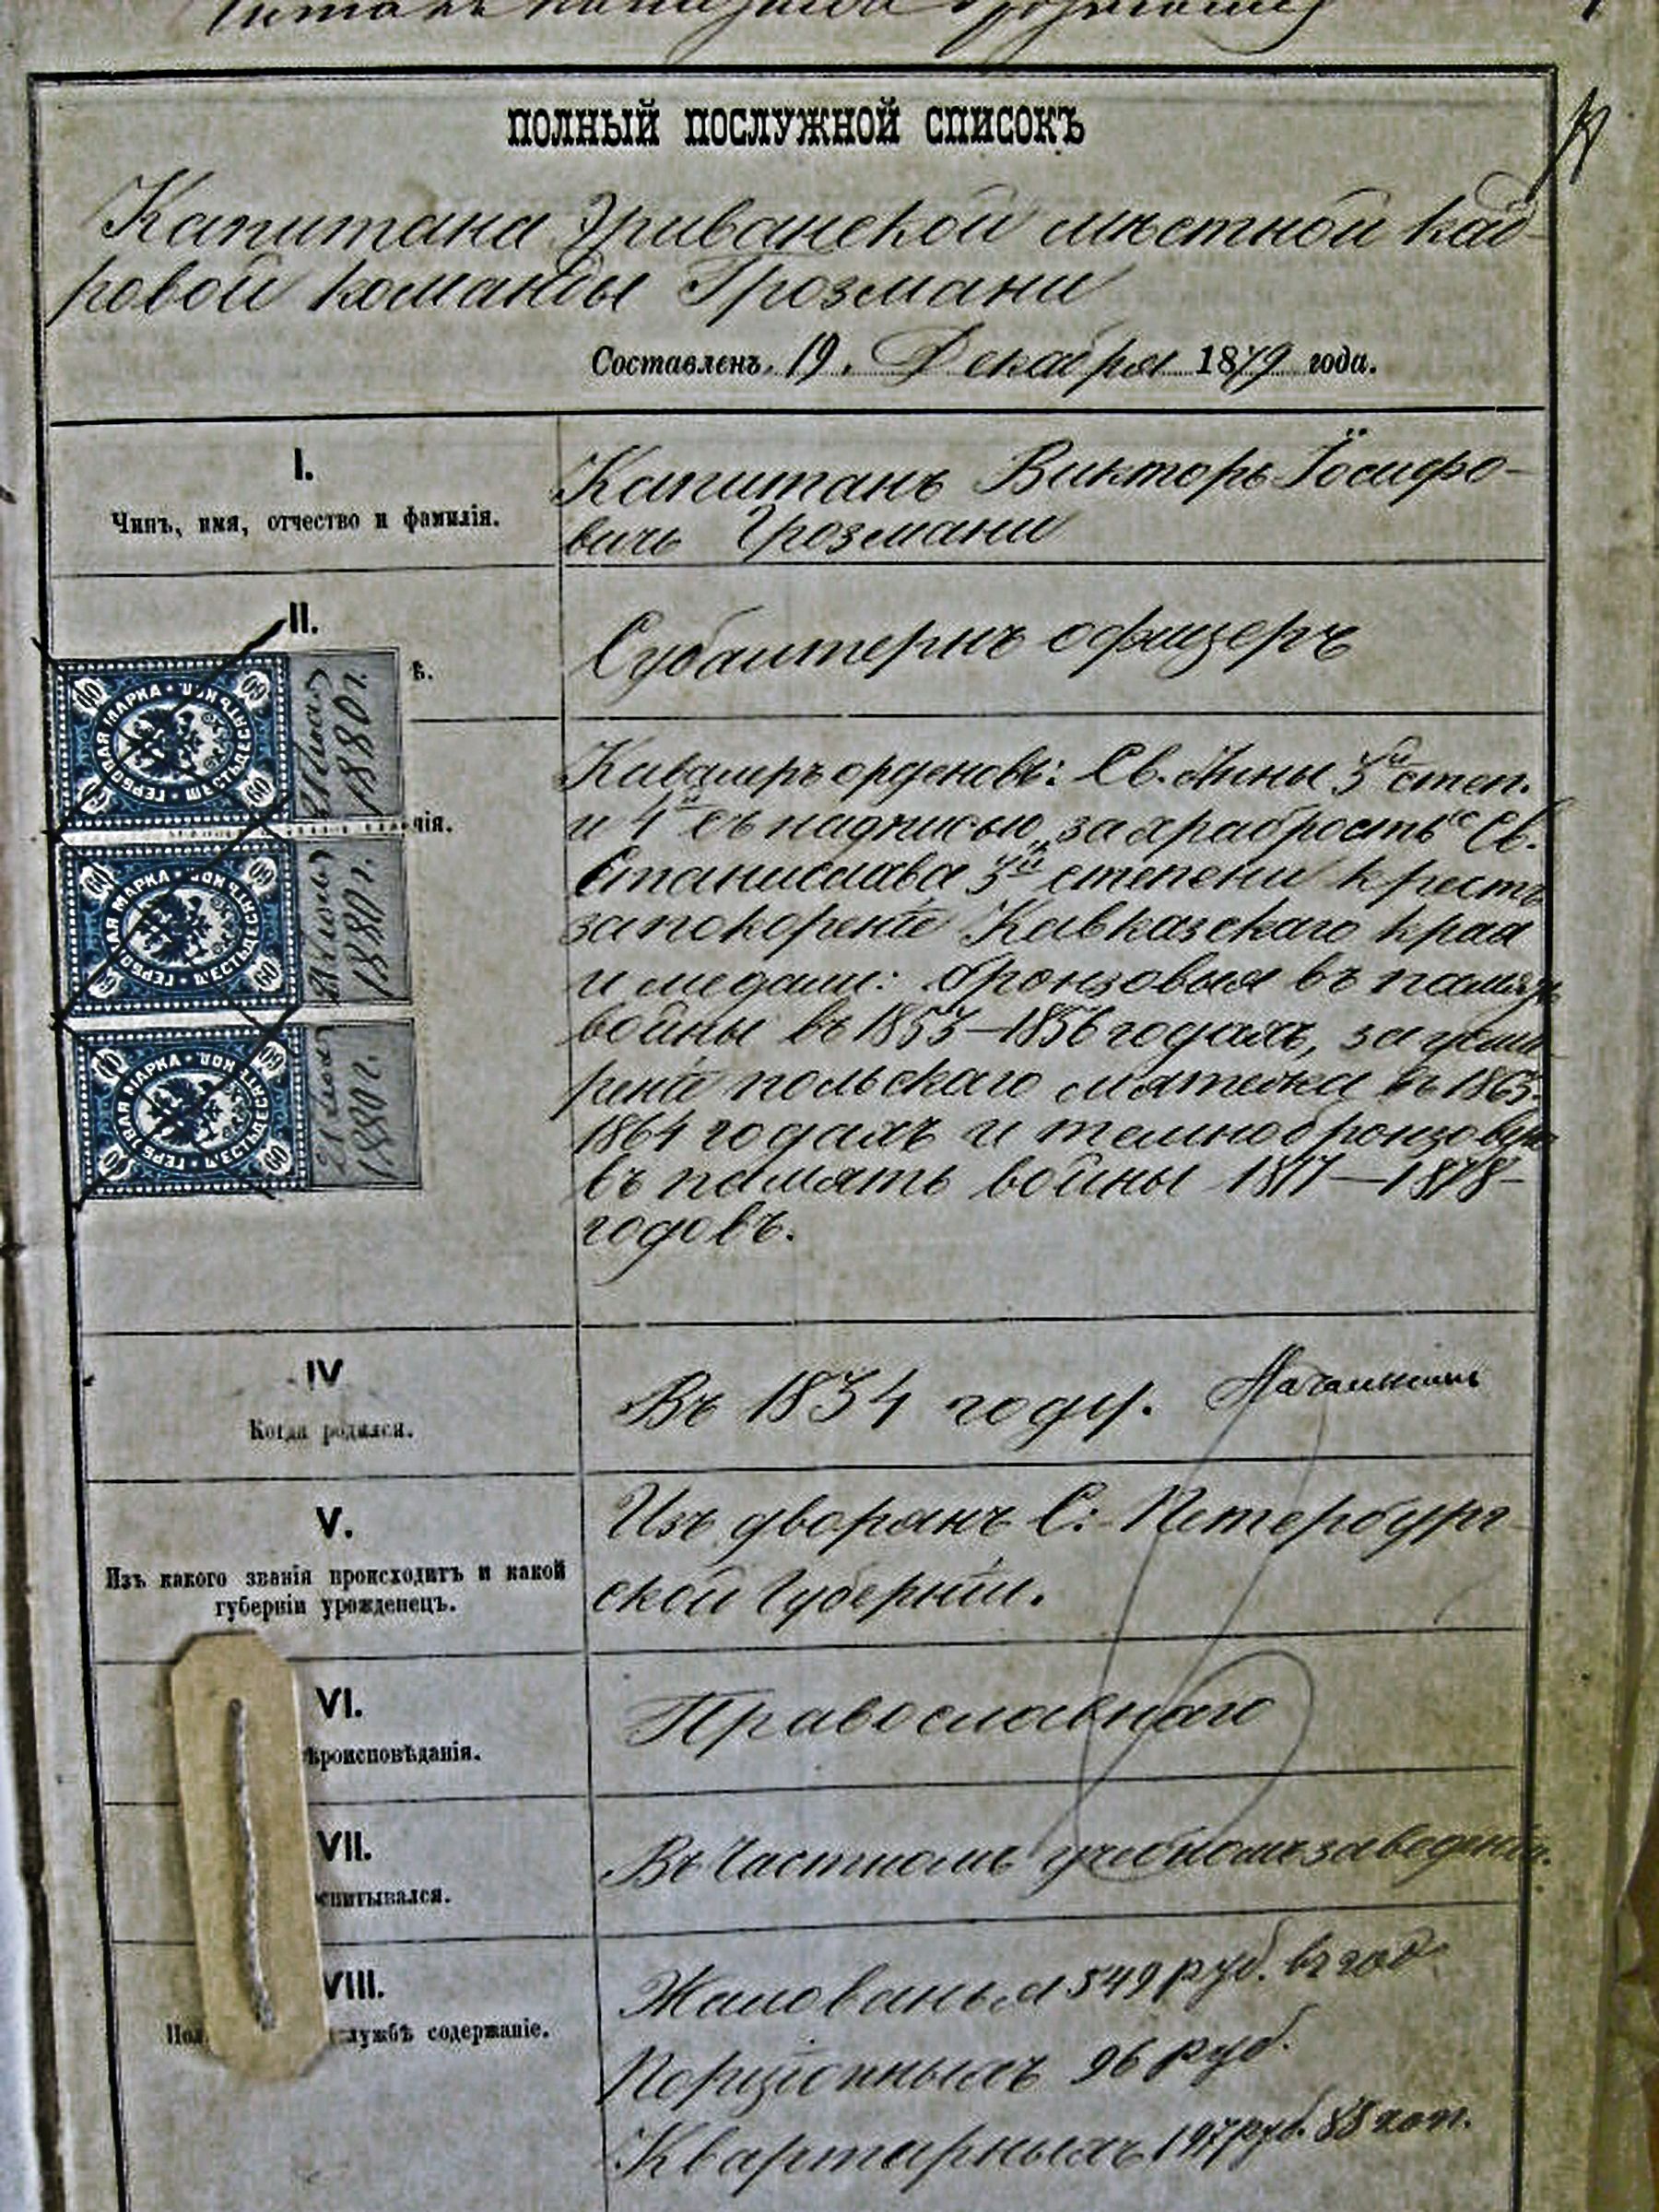 ПОЛНЫЙ ПОСЛУЖНОЙ СПИСОКЪ
Капитана Эриванской мѣстной кад-
ровой команды Грозмани
Составленъ 19. Декабря 1879 года.
I.
Чинъ, имя, отчество и фамилія.
Капитанъ Викторъ Іосифо-
вичъ Грозмани
II.
ѣ.
Субалтернъ офицеръ
ГЕРБОВАЯ МАРКА • ШЕСТЬДЕСЯТЪ КОП.
60 60 60 60
1880 г.
ГЕРБОВАЯ МАРКА • ШЕСТЬДЕСЯТЪ КОП.
60 60 60 60
1880 г.
ГЕРБОВАЯ МАРКА • ШЕСТЬДЕСЯТЪ КОП.
60 60 60 60
1880 г.
чія.
Кавалеръ орденовъ: Св. Анны 3й степ.
и 4й съ надписью „за храбрость“ Св.
Станислава 3й степени крестъ
за покореніе Кавказскаго края
и медали: бронзовыя въ память
войны въ 1853–1856 годахъ, за усми-
реніе польскаго мятежа въ 1863-
1864 годахъ и темнобронзовую
въ память войны 1877–1878-
годовъ.
IV
Когда родился.
Въ 1834 году.
V.
Изъ какого званія происходитъ и какой
губерніи урожденецъ.
Изъ дворянъ С:-Петербург-
ской Губерніи.
VI.
ѣроисповѣданія.
Православнаго
VII.
спитывался.
Въ Частномъ учебномъ заведеніи.
VIII.
Пол лужбѣ содержаніе.
Жалованья 549 руб. въ год
Порціонныхъ 96 руб.
Квартирныхъ 197 руб. 85 коп.